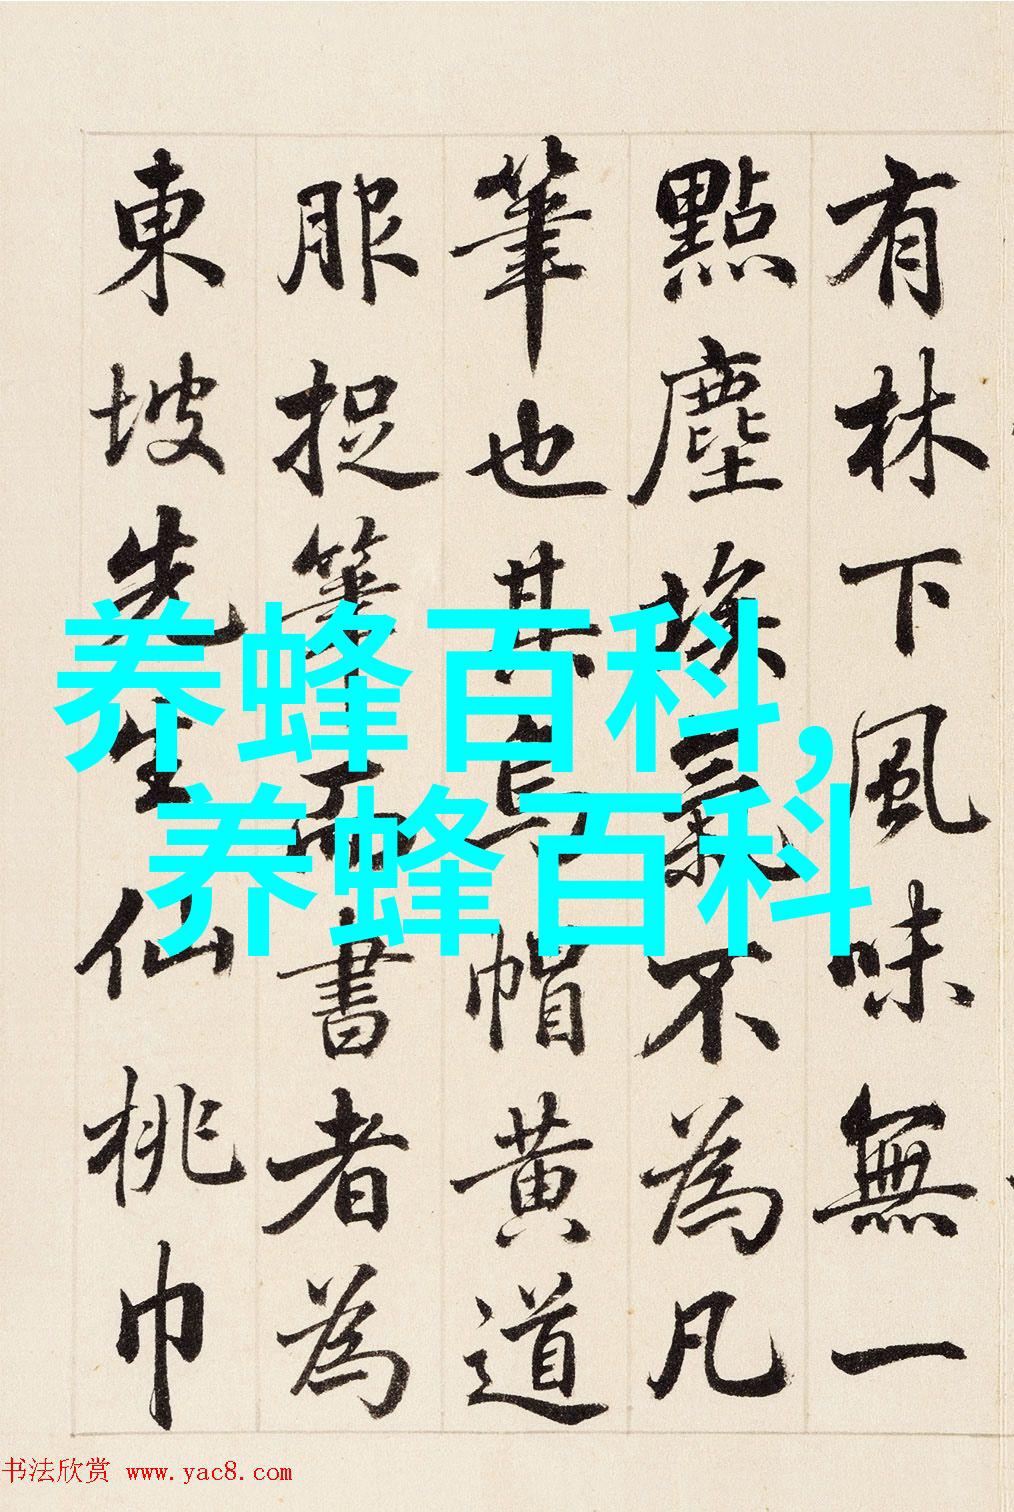 有林下風味無一
點塵埃氣不為凡
筆也其烏帽黄道
服捉筆而書者為
東坡先生仙桃巾
养蜂百科,
养蜂百科
书法欣赏 www.yac8.com